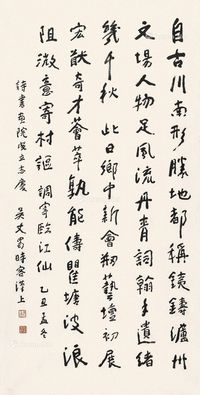 自古川南形勝地都稱鐵鑄瀘州
文場人物足風流丹青詞翰手遺緒
幾千秋 此日鄉中新會刱藝壇初展
宏猷奇才薈萃孰能儔瞿塘波浪
阻微意寄村謳 調寄臨江仙 乙丑孟冬
詩書畫院成立志慶 吳丈蜀時客漢上